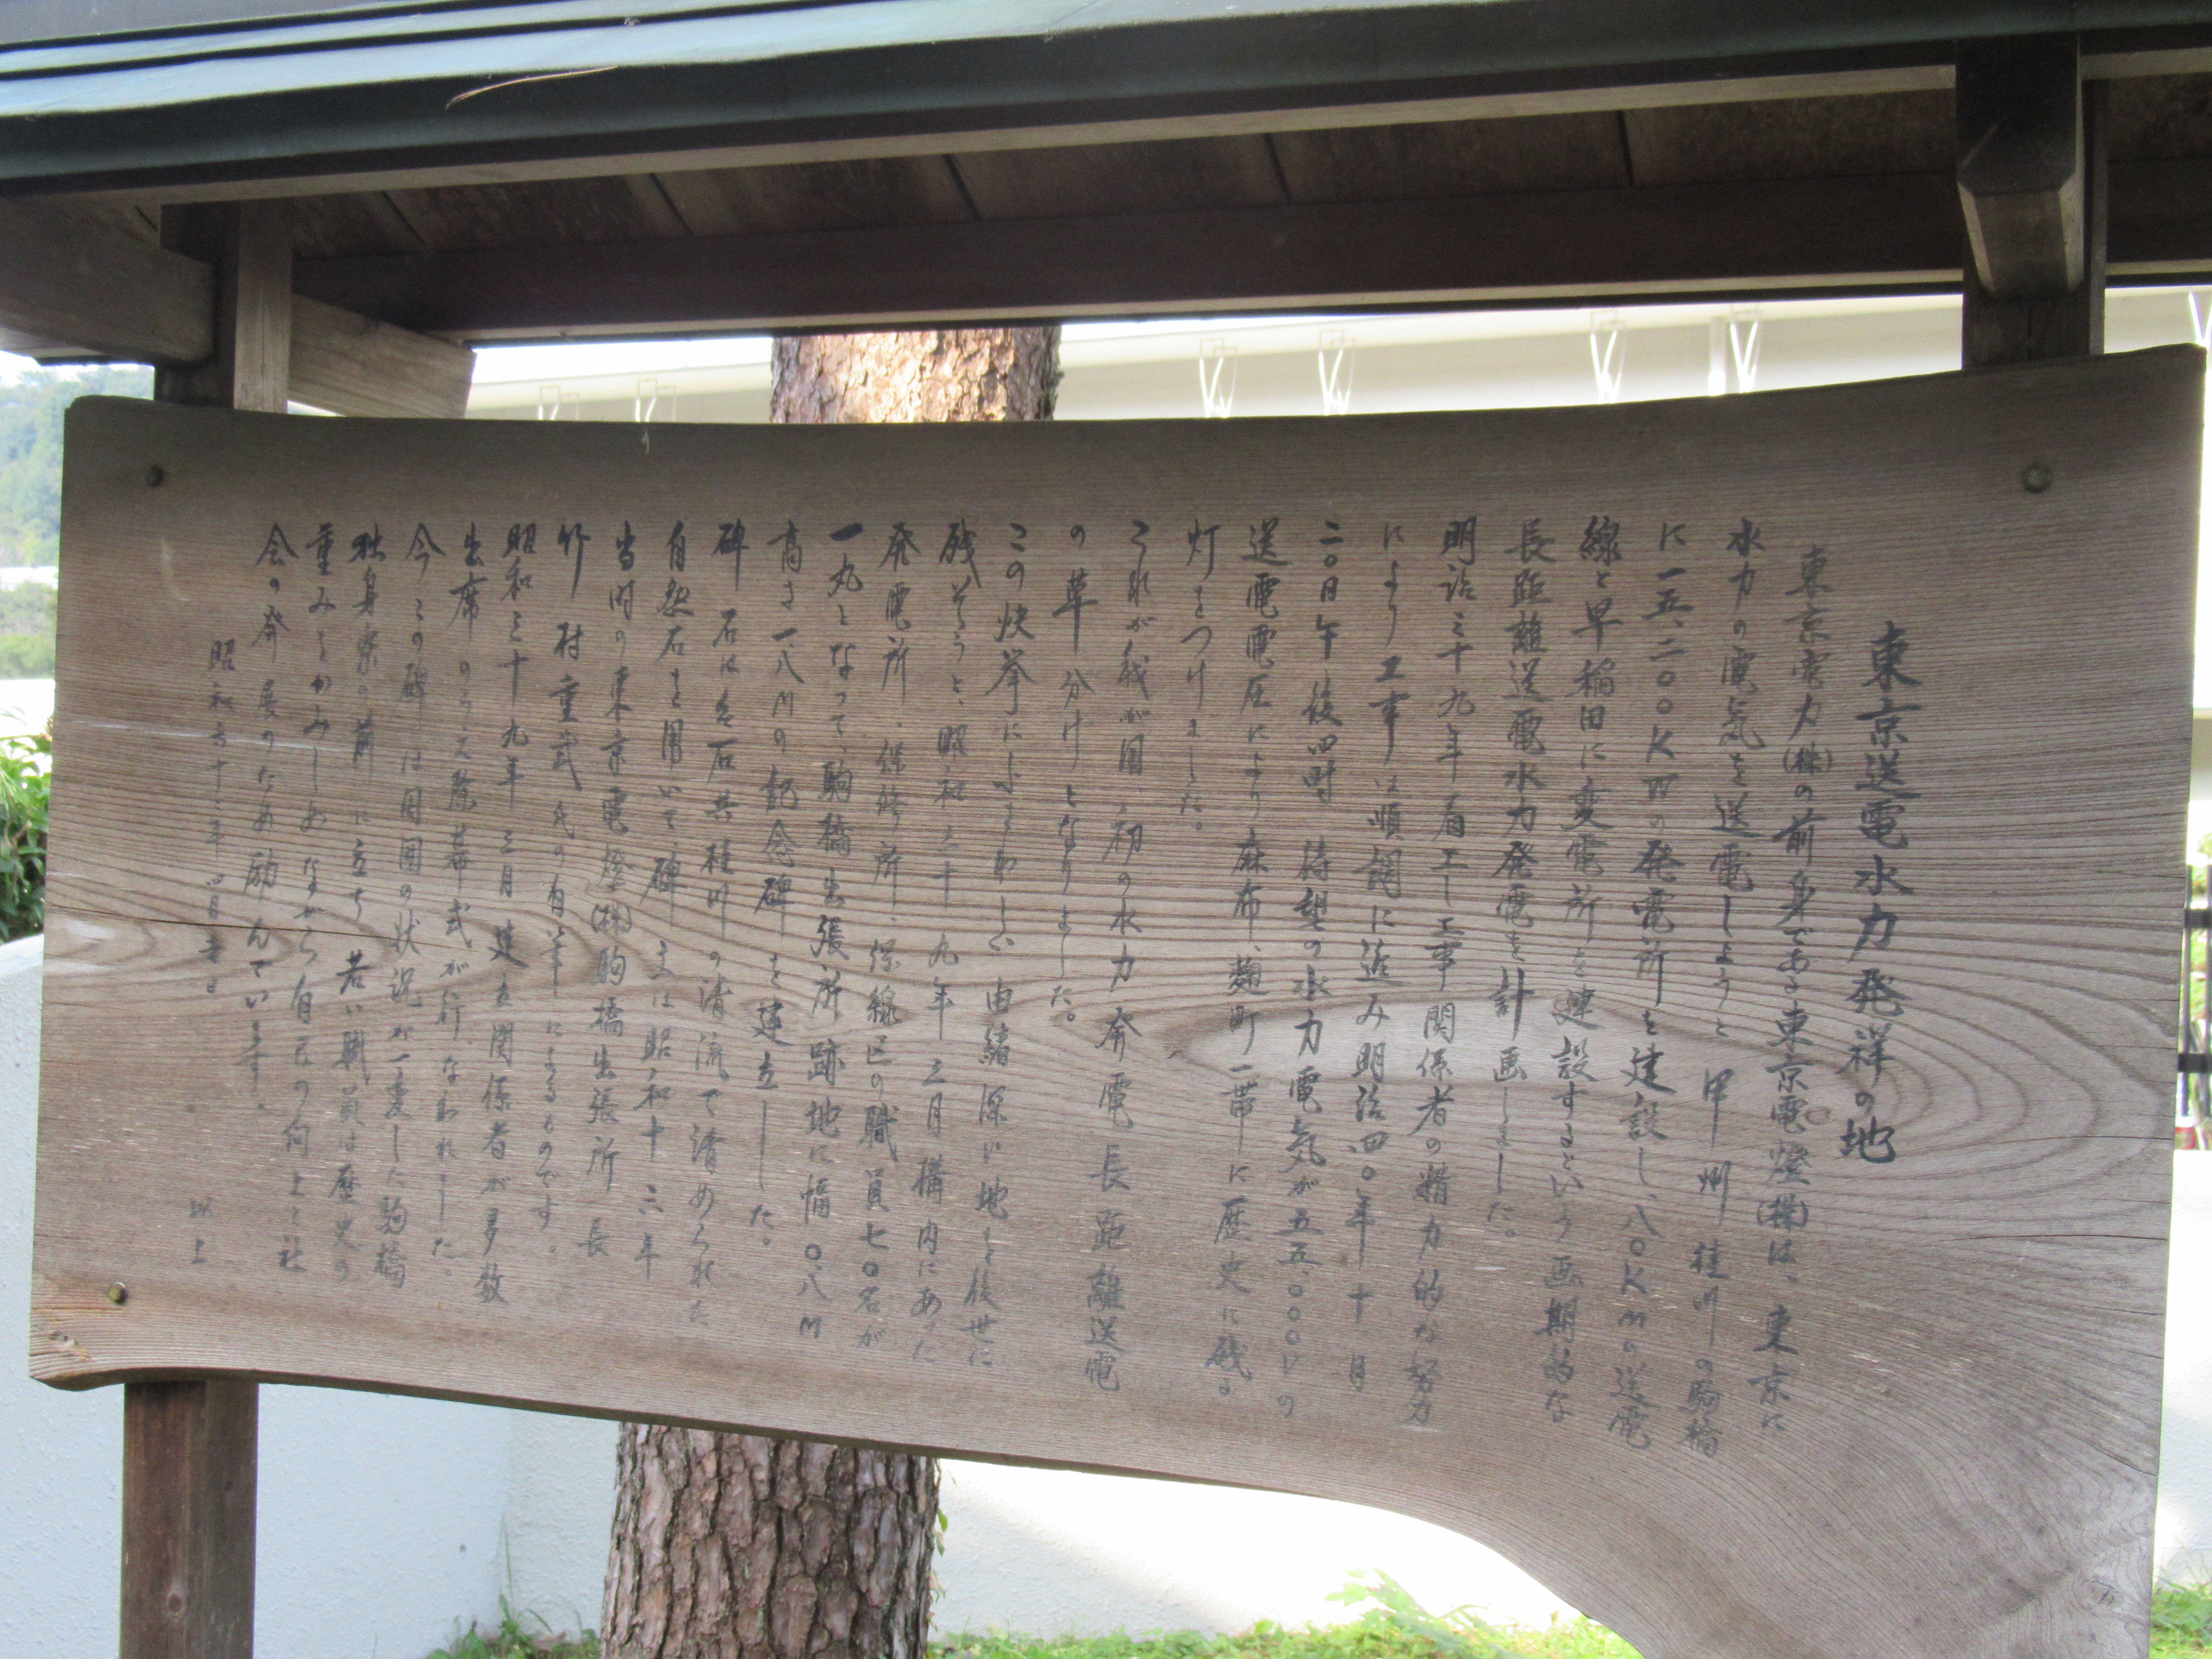 東京送電水力発祥の地
東京電力(株)の前身である東京電燈(株)は、東京に
水力の電気を送電しようと甲州桂川の駒橋
に一五、二〇〇KWの発電所を建設し、八〇KMの送電
線と早稲田に変電所を建設するという画期的な
長距離送電水力発電を計画しました。
明治三十九年着工し工事関係者の精力的な努力
により工事は順調に進み明治四〇年十月
二〇日午後四時 待望の水力電気が五五、〇〇〇Vの
送電電圧により麻布、麹町一帯に歴史に残る
灯をつけました。
これが我が国、初の水力発電長距離送電
の草分けとなりました。
この快挙にふさわしい由緒深い地を後世に
残そうと、昭和三十九年三月構内にあった
発電所、保修所、保線区の職員七〇名が
一丸となって、駒橋出張所跡地に幅〇.八M
高さ一.八Mの記念碑を建立しました。
碑石は名石兵桂川の清流で清められた
自然石を用いて、碑文は昭和十六年
当時の東京電燈(株)駒橋出張所長
竹村重武氏の自筆によるものです。
昭和三十九年三月建立関係者が多数
出席のうえ除幕式が行なわれました。
今この碑は周囲の状況が一変した駒橋
独身寮の前に立ち若い職員は歴史の
重みをかみしめながら自己の向上と社
会の発展のため励んでいます。
昭和六十一年四月吉日
以上